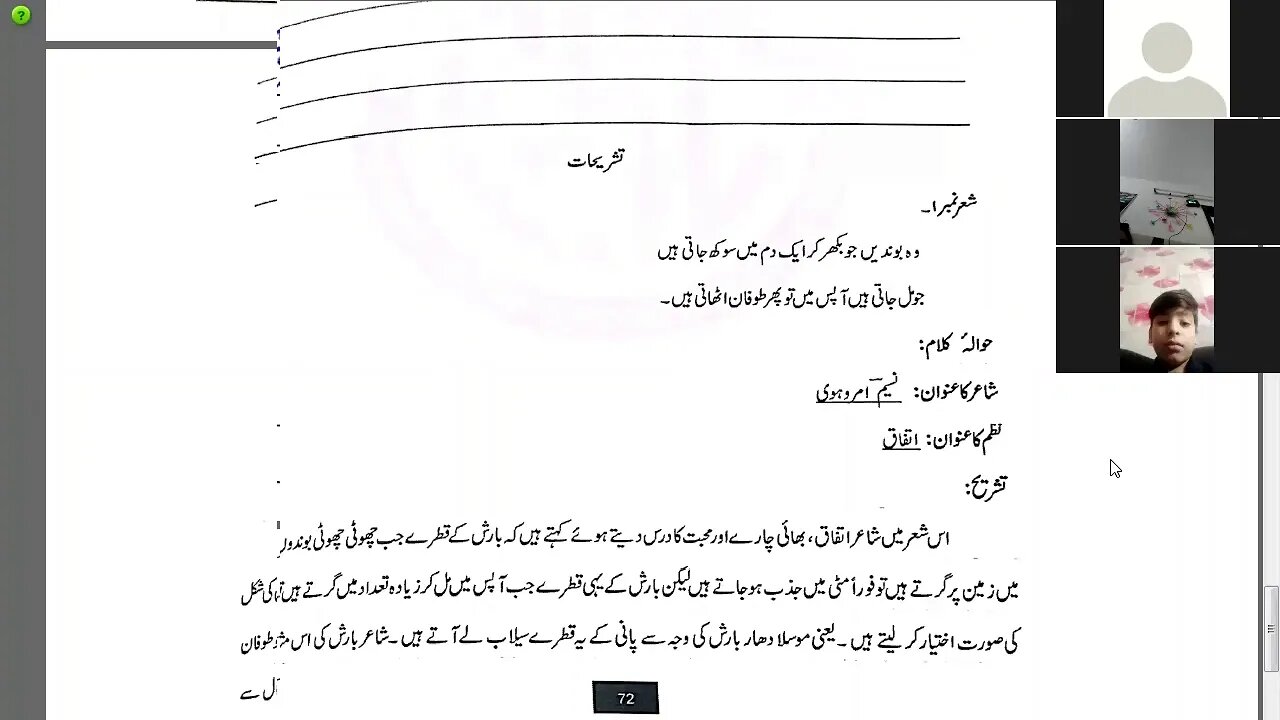 تشریحات
شعر نمبر ۱۔
وہ بوندیں جو بکھر کر ایک دم میں سوکھ جاتی ہیں
جو مل جاتی ہیں آپس میں تو پھر طوفان اٹھاتی ہیں۔
حوالۂ کلام:
شاعر کا عنوان: نسیم امروہوی
نظم کا عنوان: اتفاق
تشریح:
اس شعر میں شاعر اتفاق، بھائی چارے اور محبت کا درس دیتے ہوئے کہتے ہیں کہ بارش کے قطرے جب چھوٹی چھوٹی
میں زمین پر گرتے ہیں تو فوراً مٹی میں جذب ہو جاتے ہیں لیکن بارش کے یہی قطرے جب آپس میں مل کر زیادہ تعداد میں گرتے ہیں کی شکل
کی صورت اختیار کر لیتے ہیں۔ یعنی موسلا دھار بارش کی وجہ سے پانی کے یہ قطرے سیلاب لے آتے ہیں۔ شاعر بارش کی اس طوفان
سے
72